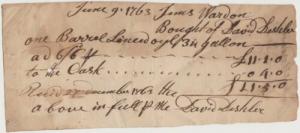 June 9. 1763 James Wardon
Bought of David Deshler
one Barrel Linseed oyl 34 gallon
ad 6/6 £11.1.0
to the Cask 0 4.0
£11.5.0
Recd 27 December 1763 the
above in full p me David Deshler